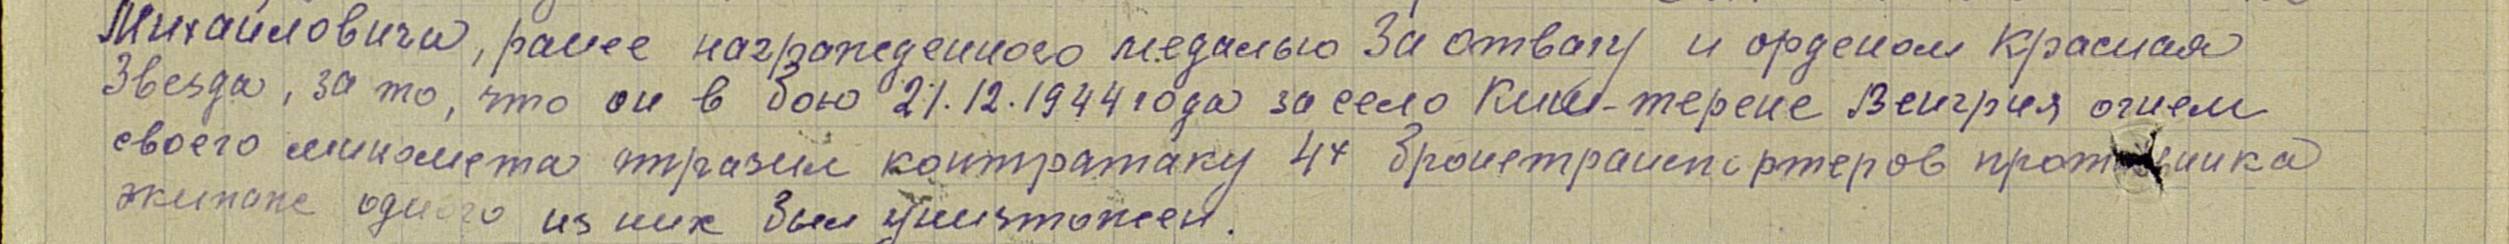 Михайловича, ранее награжденного медалью За отвагу и орденом Красная
Звезда, за то, что он в бою 21.12.1944 года за село Киш-терене Венгрия огнем
своего миномета отразил контратаку 4х бронетранспортеров противника
экипаж одного из них был уничтожен.